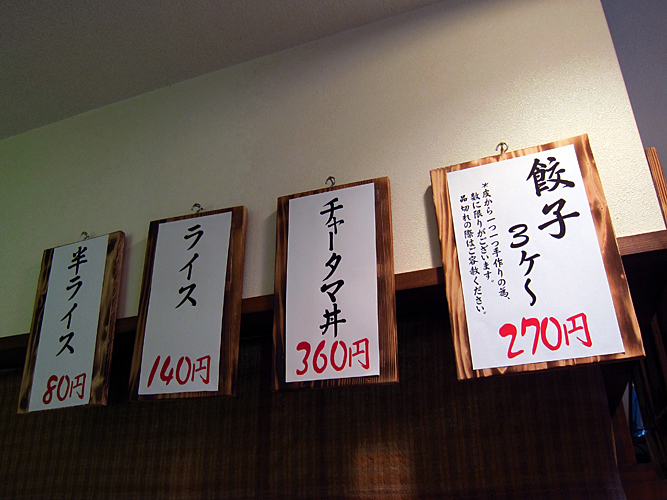 餃子
3ケ～
270円
*皮から一つ一つ手作りの為、
数に限りがございます。
品切れの際はご容赦ください。
チャータマ丼
360円
ライス
140円
半ライス
80円